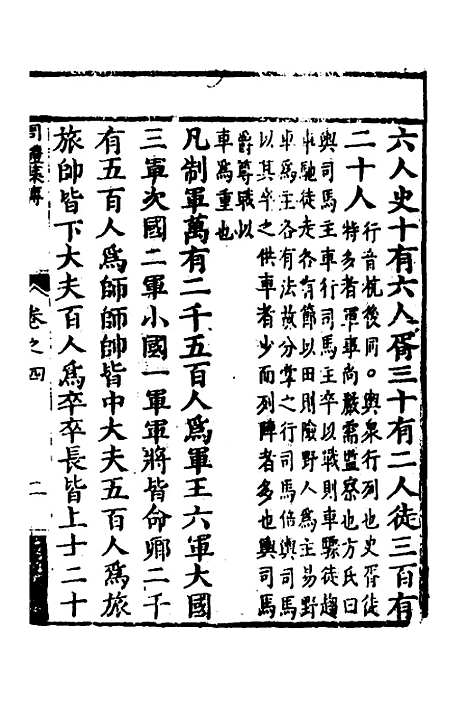 六人史十有六人胥三十有二人徒三百有
二十人
行音杭後同。輿衆行列也史胥徒
特多者軍事尚嚴需監察也方氏曰
輿司馬主車行司馬主卒以戰則車驟徒趨
車馳徒走各有節以田則險野人爲主易野
車爲主各有法故分掌之行司馬倍輿司馬
以其卒之供車者少而列陣者多也輿司馬
爵尊職以
車爲重也
凡制軍萬有二千五百人爲軍王六軍大國
三軍次國二軍小國一軍軍將皆命卿二千
有五百人爲師師帥皆中大夫五百人爲旅
旅帥皆下大夫百人爲卒卒長皆上士二十
周禮集傳
卷之四
二